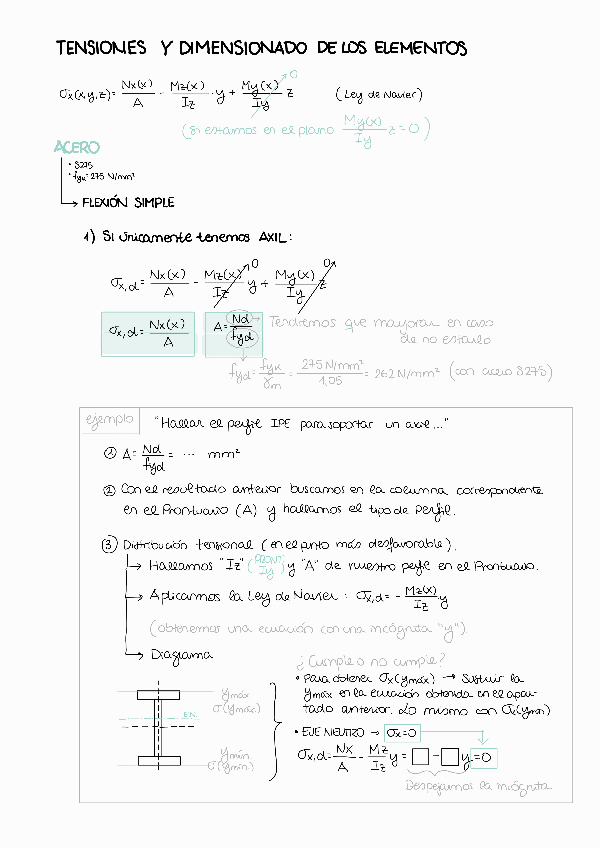 TENSIONES Y DIMENSIONADO DE LOS ELEMENTOS
σx(x,y,z)= Nx(x)/A - Mz(x)/Iz · y + My(x)/Iy z 0 (Ley de Navier)
(Si estamos en el plano My(x)/Iy z = 0)
ACERO
• S275
• fyk= 275 N/mm²
→ FLEXIÓN SIMPLE
1) Si únicamente tenemos AXIL:
σx,d = Nx(x)/A - Mz(x)/Iz y 0 + My(x)/Iy z 0
σx,d = Nx(x)/A A = Nd/fyd → Tendremos que mayorar en caso
de no estarlo
fyd = fyk/γm = 275 N/mm²/1,05 = 262 N/mm² (con acero S275)
ejemplo "Hallar el perfil IPE para soportar un axil..."
① A = Nd/fyd = ... mm²
② Con el resultado anterior buscamos en la columna correspondiente
en el Prontuario (A) y hallamos el tipo de perfil.
③ Distribución tensional (en el punto más desfavorable).
→ Hallamos "Iz" (PRONT. Iy) y "A" de nuestro perfil en el Prontuario.
→ Aplicamos la Ley de Navier: σx,d = - Mz(x)/Iz y
(obtenemos una ecuación con una incógnita "y")
→ Diagrama
¿Cumple o no cumple?
• Para obtener σx(ymáx) → Sustituir la
ymáx en la ecuación obtenida en el apar-
tado anterior. Lo mismo con σx(ymin)
ymáx
σ(ymáx)
E.N.
ymin
σ(ymin)
• EJE NEUTRO → σx=0
σx,d = Nx/A - Mz/Iz y = □ - □ y = 0
Despejamos la incógnita